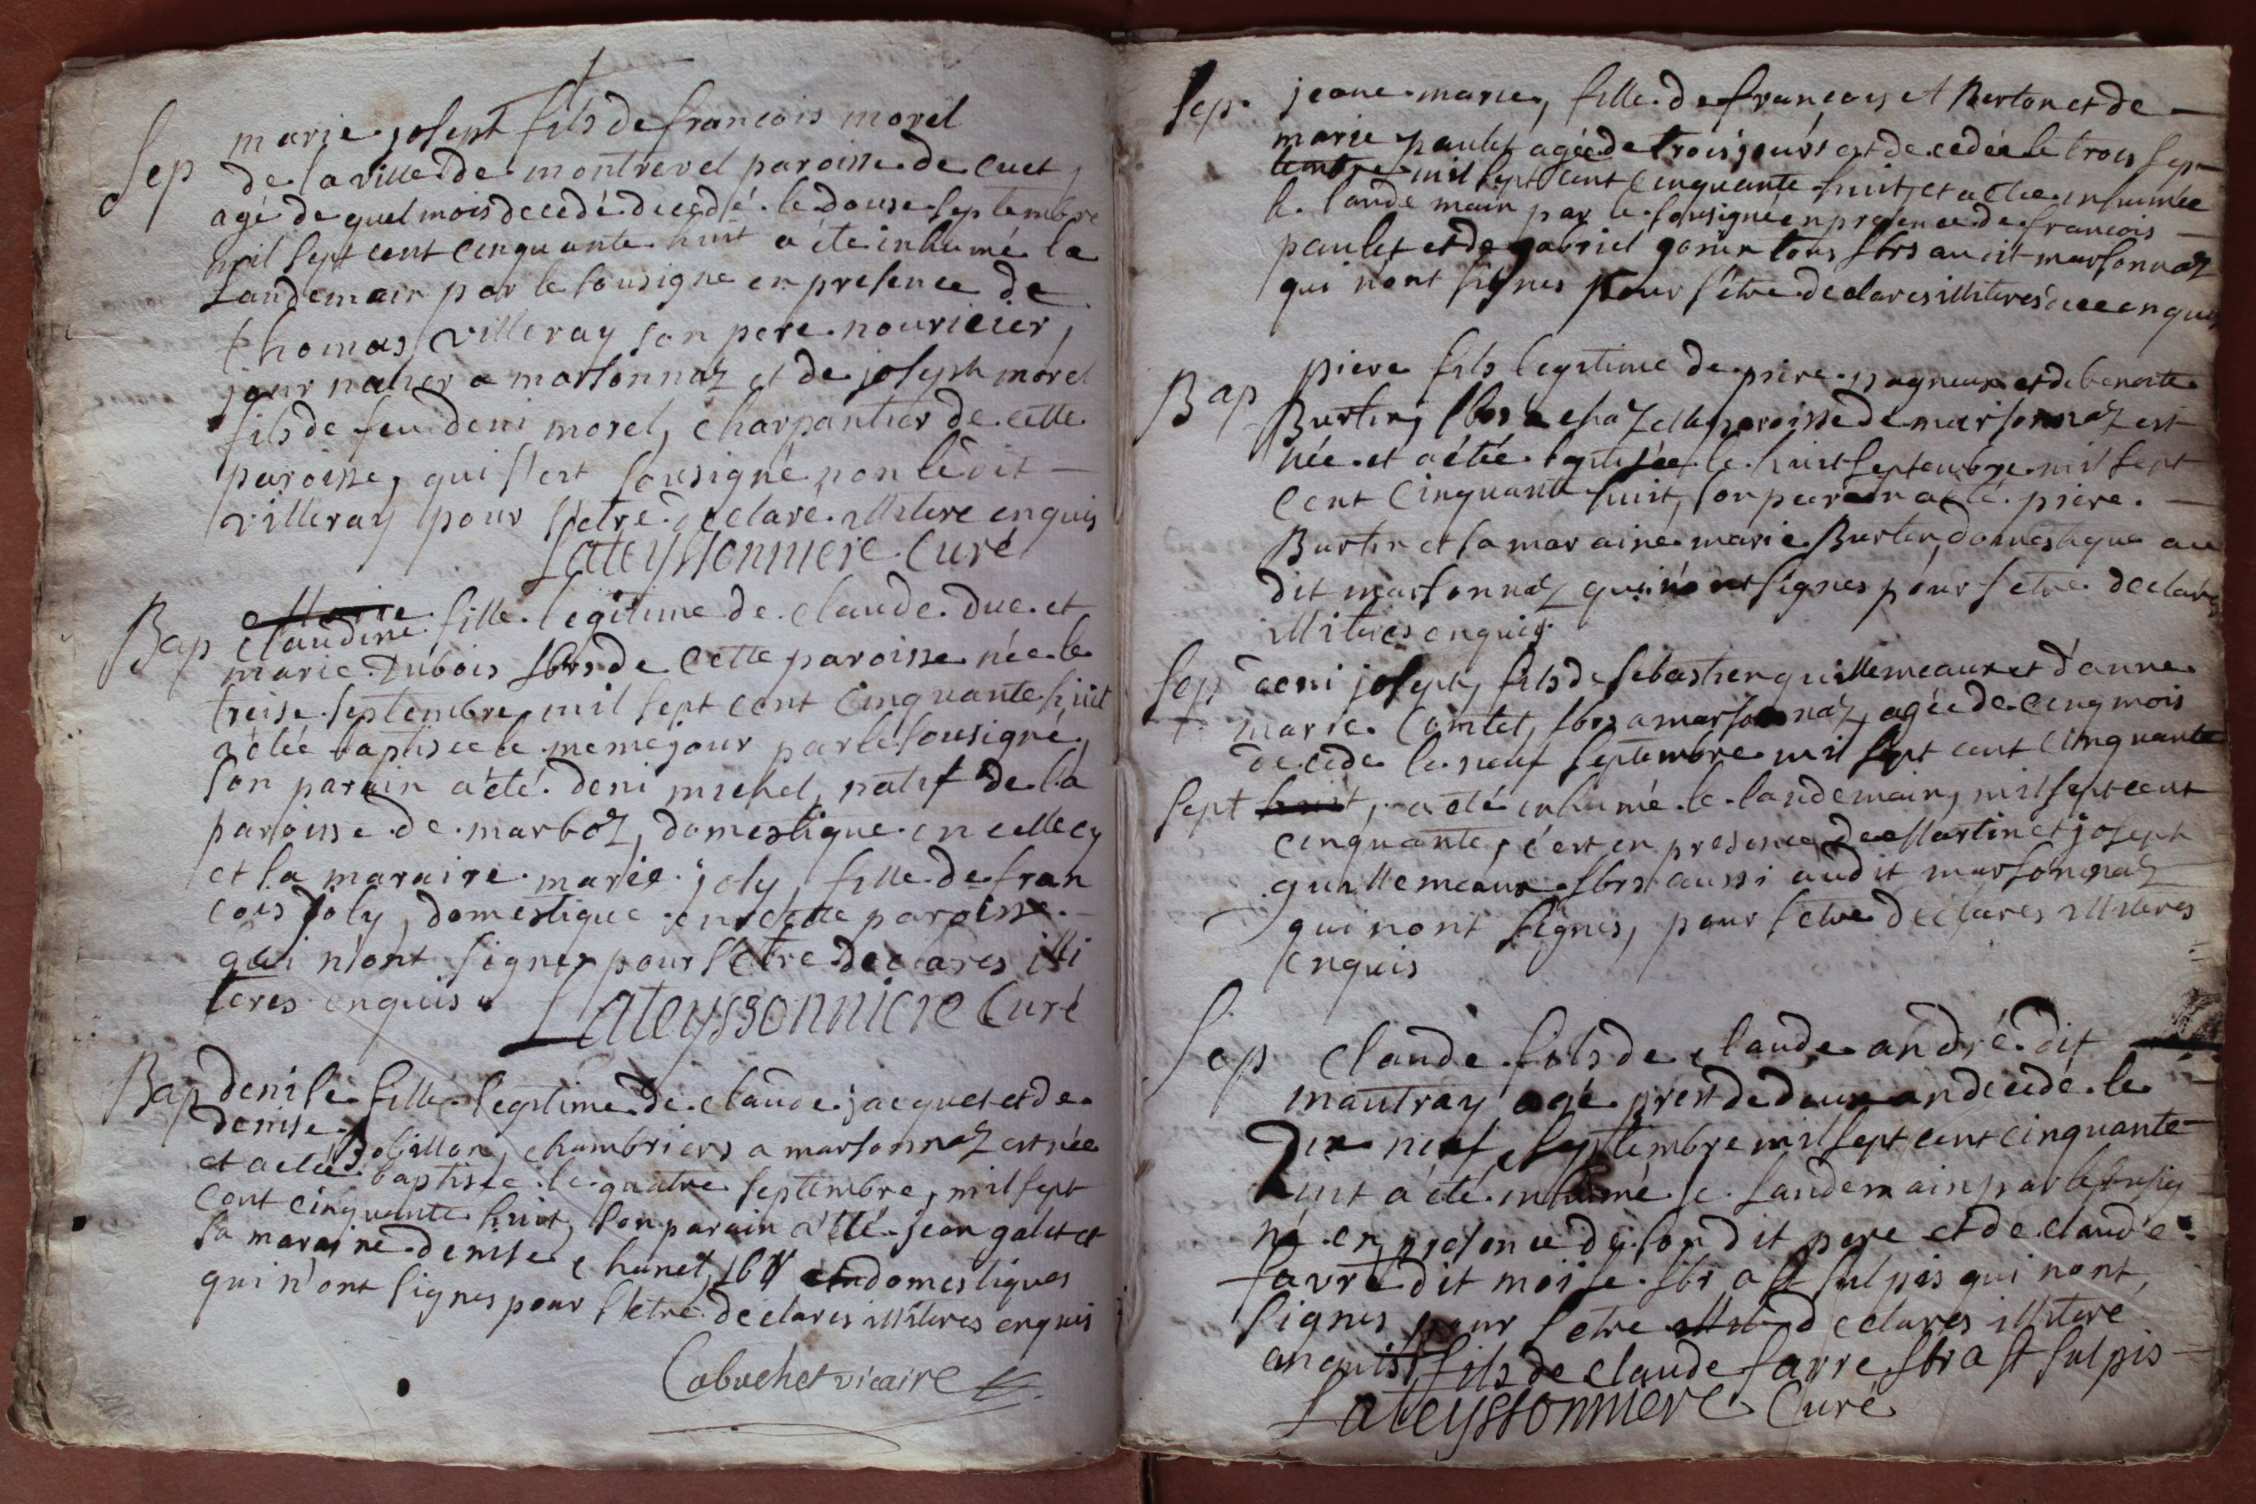 Sep marie josept fils de francois morel
de la ville de montrevel paroisse de cuet,
agé de quel mois decedé decedé le douse septembre
mil sept cent cinquante huit a éte inhumé le
Landemain par le sousigne en presence de
thomas villeray son pere nouricier,
journalier a marsonnaz et de joseph morel
fils de feu deni morel, charpantier de cette
paroisse, qui s'est sousigné non le dit
villeray pour s'etre declare illitere enquis
Lateyssonniere Curé
Bap claudine fille legitime de claude duc et
marie Dubois hbrs de cette paroisse née le
treise septembre mil sept cent cinquante huit
a étée baptisée le meme jour par le sousigné,
son parain a été deni michel, natif de la
paroisse de marboz, domestique en cellecy
et la maraire marie joly, fille de fran
cois joly, domestique en cette paroisse
qui n'ont signes pour s'etre declares illi
teres enquis
Lateyssonniere Curé
Bap denise fille legitime de claude jacquet et de
denise Bobillon, chambriers a marsonnaz est née
et a etée baptisée le quatre septembre, mil sept
cent cinquante huit, son parain a été jean galet et
sa maraine denise chanel, domestiques
qui n'ont signes pour s'etre declares illiteres enquis
Cabuchet vicaire
Sep. jeane marie, fille de francois Berton et de
marie paulet agée de trois jours est decedée le trois sep
tembre mil sept cent cinquante huit, et a etée inhumée
le landemain par le sousigné en presence de francois
paulet et de gabriel gorin tous hbrs audit marsonnaz
qui n'ont signes pour s'etre declares illiteres enquis
Bap piere fils legitime de piere pagneux et de benoite
Burtin, hbrs a chazelle paroisse de marsonnaz est
née et a étée baptisée le huit septembre mil sept
cent cinquante huit, son parain a été piere
Burtin et sa maraine marie Burtin, domestique au
dit marsonnaz qui n'ont signes pour s'etre declares
illiteres enquis
Sep deni joseph, fils de sebastien guillemeaux et d'anne
marie Comtet, hbrs a marsonnaz, agée de cinq mois
decede le neuf septembre mil sept cent cinquante
sept huit, a eté inhumé le landemain, mil sept cent
cinquante, c'est en presence de Martin et josept
guillemeaux hbrs aussi audit marsonnaz
qui n'ont signes, pour s'etre declares illiteres
enquis
Sep Claude fils de claude andré dit
mantray agé prest de deux an decedé le
Dix neuf septembre mil sept cent cinquante
huit a été inhumé le landemain par le sousig
né en presence de son dit pere et de claude
favre dit moise hbr a st sulpis qui n'ont
signes pour s'etre declares illitere
enquis, fils de claude favre hbr a st sulpis
Lateyssonniere Curé